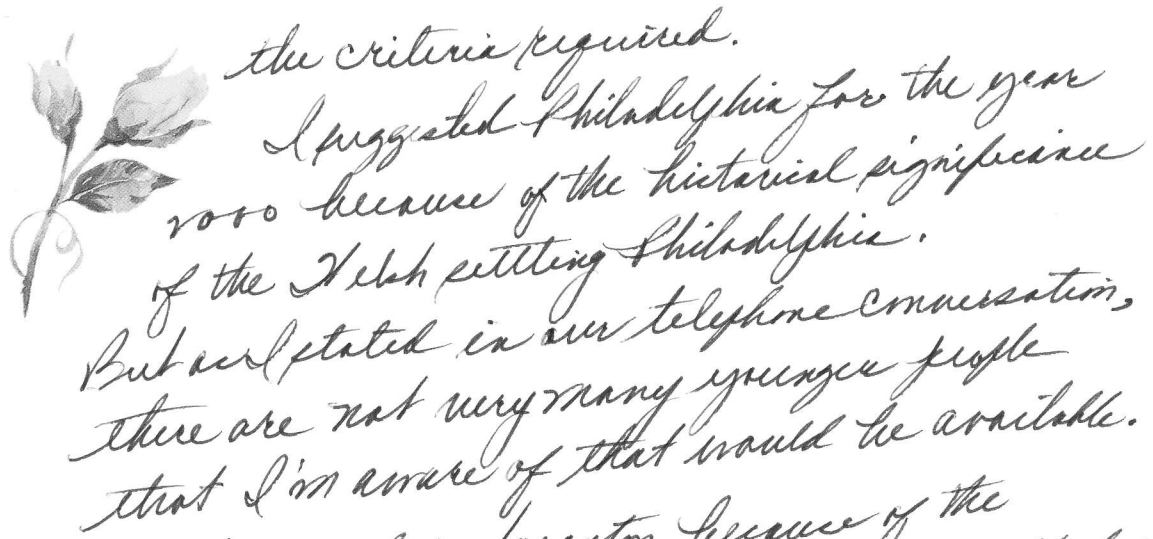 the criteria required.
I suggested Philadelphia for the year
2000 because of the historical significance
of the Welsh settling Philadelphia.
But as I stated in our telephone conversation,
there are not very many younger people
that I'm aware of that would be available.
because of the